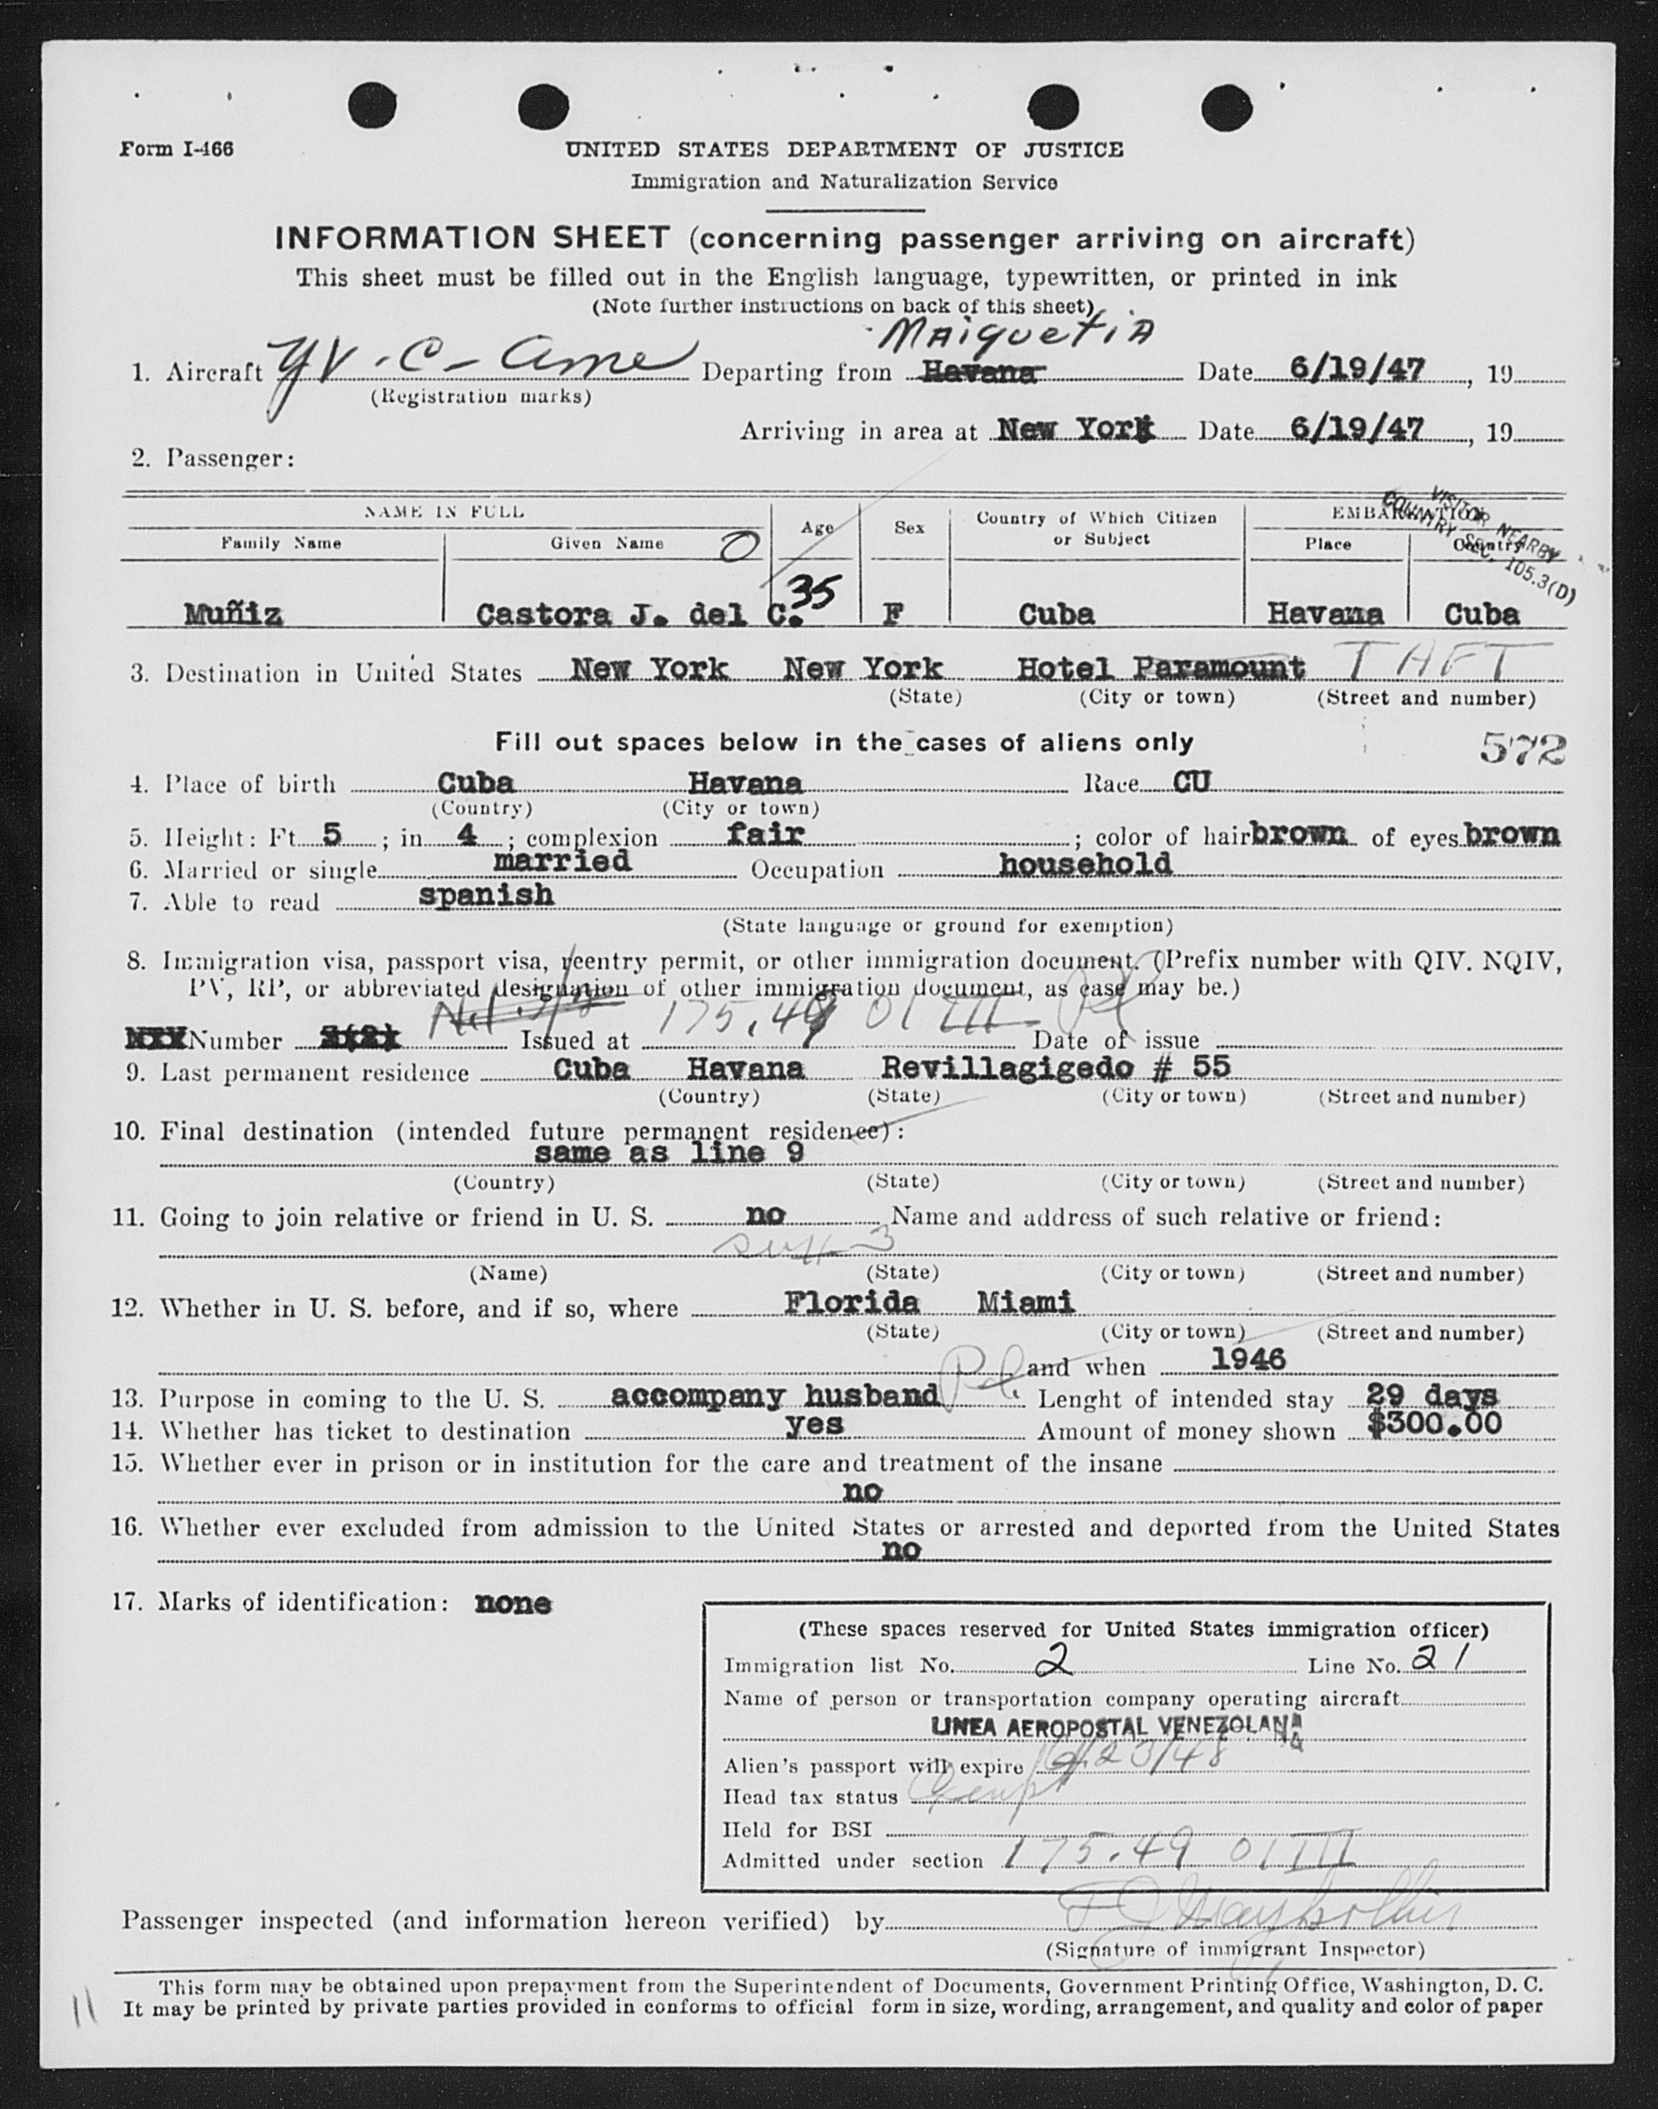 Form I-466
UNITED STATES DEPARTMENT OF JUSTICE
Immigration and Naturalization Service
INFORMATION SHEET (concerning passenger arriving on aircraft)
This sheet must be filled out in the English language, typewritten, or printed in ink
(Note further instructions on back of this sheet)
MAiquetiA
1. Aircraft YV-C-Ame Departing from Havana Date 6/19/47, 19
(Registration marks)
Arriving in area at New York Date 6/19/47, 19
2. Passenger:
VISITOR NEARBY
COUNTRY SEC. 105.3(D)
NAME IN FULL Age Sex Country of Which Citizen or Subject EMBARKATION
Family Name Given Name O Place Country
Muñiz Castora J. del C. 35 F Cuba Havana Cuba
3. Destination in United States New York New York Hotel Paramount TAFT
(State) (City or town) (Street and number)
Fill out spaces below in the cases of aliens only 572
4. Place of birth Cuba Havana Race CU
(Country) (City or town)
5. Height: Ft. 5; in. 4; complexion fair; color of hair brown of eyes brown
6. Married or single married Occupation household
7. Able to read spanish
(State language or ground for exemption)
8. Immigration visa, passport visa, reentry permit, or other immigration document. (Prefix number with QIV. NQIV,
PV, RP, or abbreviated designation of other immigration document, as case may be.)
Number 3(2) Issued at 175.49 01 III Date of issue
9. Last permanent residence Cuba Havana Revillagigedo # 55
(Country) (State) (City or town) (Street and number)
10. Final destination (intended future permanent residence):
same as line 9
(Country) (State) (City or town) (Street and number)
11. Going to join relative or friend in U. S. no Name and address of such relative or friend:
(Name) (State) (City or town) (Street and number)
12. Whether in U. S. before, and if so, where Florida Miami
(State) (City or town) (Street and number)
and when 1946
13. Purpose in coming to the U. S. accompany husband Lenght of intended stay 29 days
14. Whether has ticket to destination yes Amount of money shown $300.00
15. Whether ever in prison or in institution for the care and treatment of the insane
no
16. Whether ever excluded from admission to the United States or arrested and deported from the United States
no
17. Marks of identification: none
(These spaces reserved for United States immigration officer)
Immigration list No. 2 Line No. 21
Name of person or transportation company operating aircraft
LINEA AEROPOSTAL VENEZOLANA
Alien's passport will expire
Head tax status
Held for BSI
Admitted under section 175.49 01 III
Passenger inspected (and information hereon verified) by
(Signature of immigrant Inspector)
This form may be obtained upon prepayment from the Superintendent of Documents, Government Printing Office, Washington, D. C.
It may be printed by private parties provided in conforms to official form in size, wording, arrangement, and quality and color of paper
11